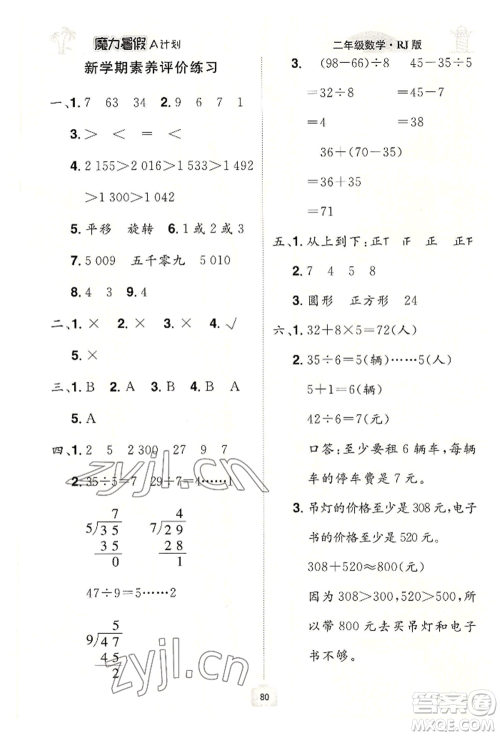 魔力暑假 A计划
二年级数学·RJ版
新学期素养评价练习
一、1. 7 63 34 2. 9 6 7 1
3. > < = > <
4. 2 155>2 016>1 533>1 492
>1 300>1 042
5. 平移 旋转 6. 1或2或3
7. 5 009 五千零九 5 010
8. 4 3
二、1. × 2. × 3. × 4. √
5. ×
三、1. B 2. A 3. B 4. B
5. A
四、1. 2 5 2 300 27 9 7
2. 35÷5=7 29÷7=4……1
7 4
5)35 7)29
35 28
0 1
47÷9=5……2
5
9)47
45
2
3. (98-66)÷8 45-35÷5
=32÷8 =45-7
=4 =38
36+(70-35)
=36+35
=71
五、1. 从上到下：正𠄟 正 正 正𠄟
2. 7 4 5 8
3. 圆形 正方形 24
六、1. 32+8×5=72(人)
2. 35÷6=5(辆)……5(人)
5+1=6(辆)
42÷6=7(元)
口答：至少要租 6 辆车，每辆车的停车费是 7 元。
3. 吊灯的价格至少是 308 元，电子书的价格至少是 520 元。
308+520≈800(元)
因为 308>300，520>500，所以爸爸带 800 元去买吊灯和电子书不够。
zyjl.cn
zyjl.cn
80
答案圈
MXQE.COM